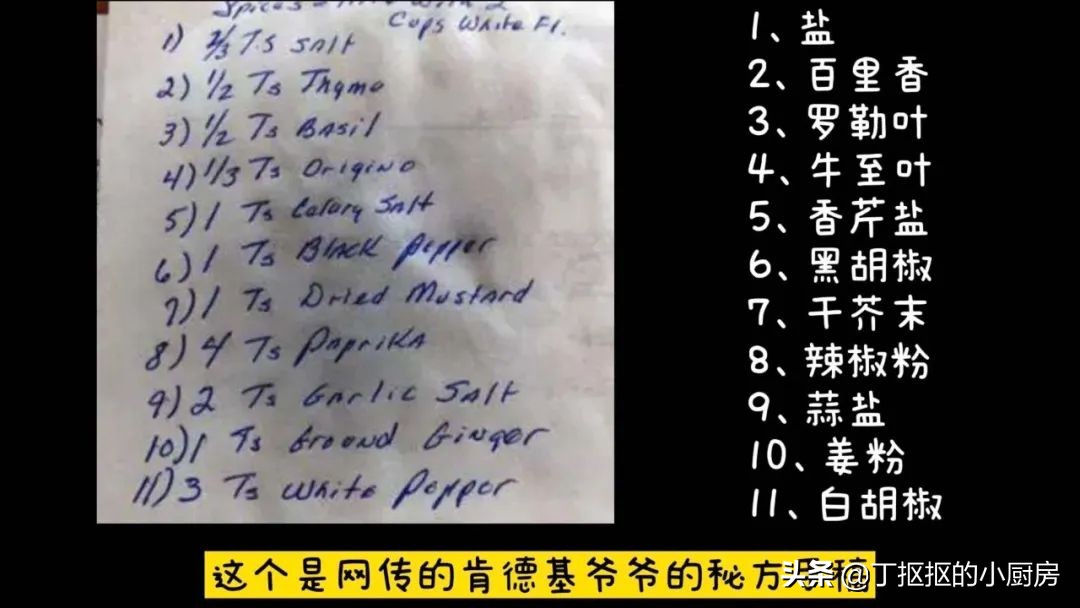 Spices Mix With 2
Cups White Fl.
1) 2/3 Ts Salt
2) 1/2 Ts Thyme
3) 1/2 Ts Basil
4) 1/3 Ts Origino
5) 1 Ts Celary Salt
6) 1 Ts Black Pepper
7) 1 Ts Dried Mustard
8) 4 Ts Paprika
9) 2 Ts Garlic Salt
10) 1 Ts Ground Ginger
11) 3 Ts White Pepper
1、盐
2、百里香
3、罗勒叶
4、牛至叶
5、香芹盐
6、黑胡椒
7、干芥末
8、辣椒粉
9、蒜盐
10、姜粉
11、白胡椒
这个是网传的肯德基爷爷的秘方
头条 @丁抠抠的小厨房